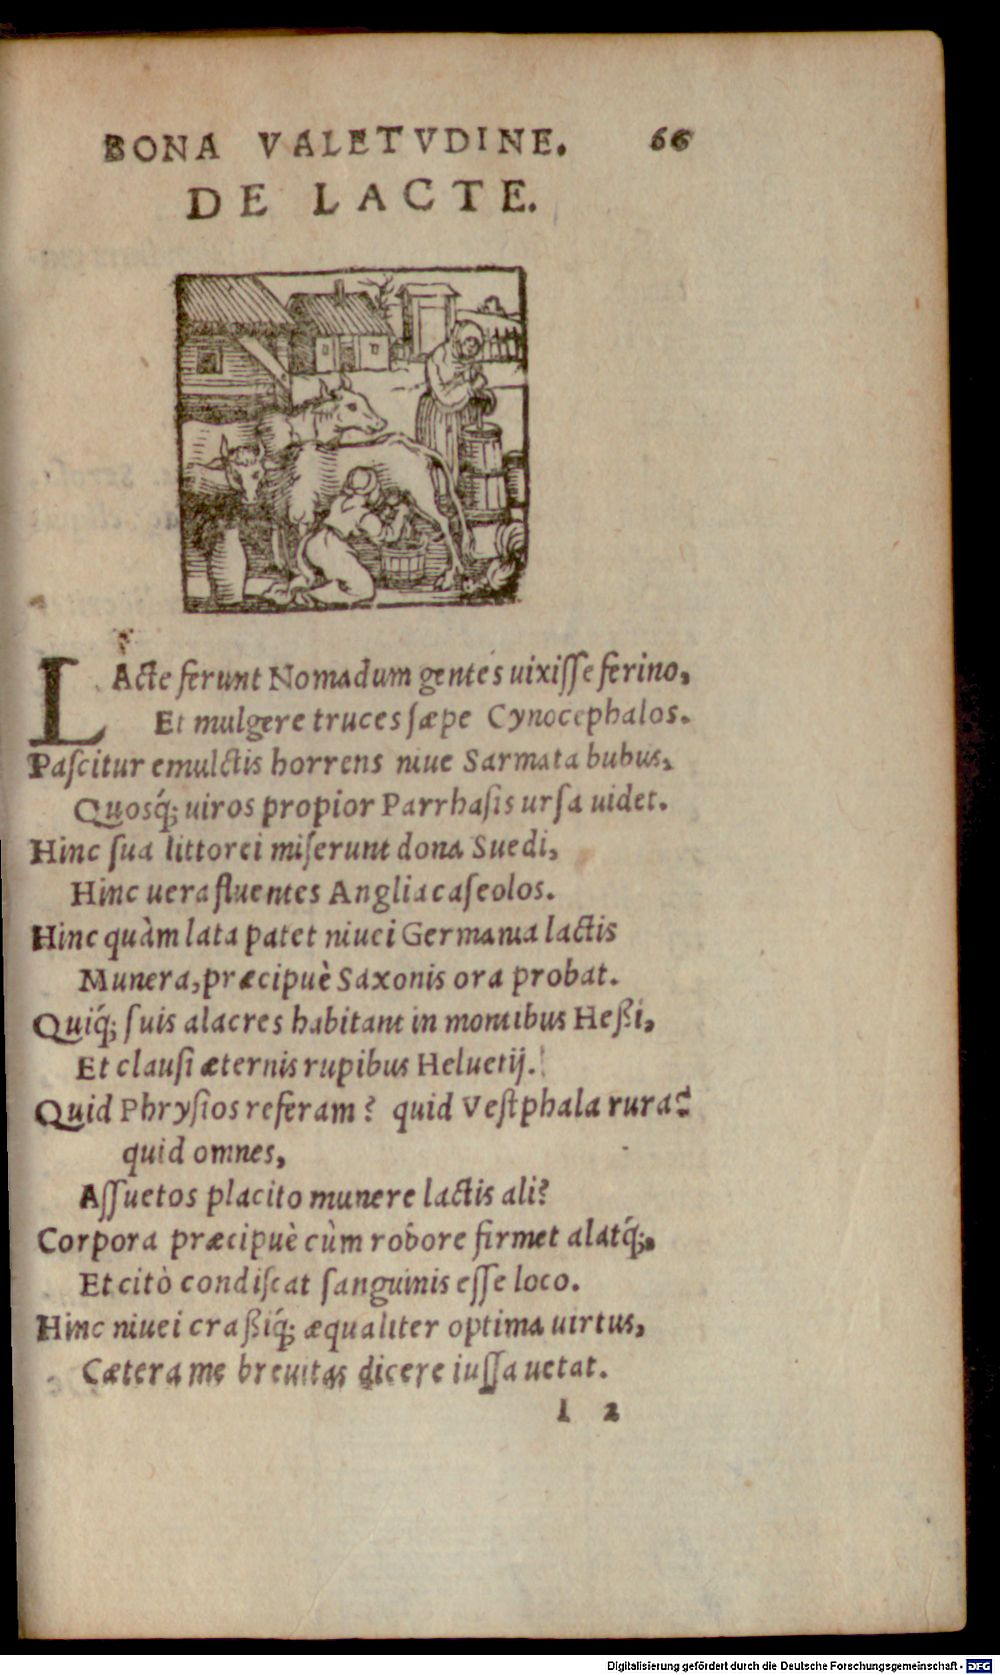 BONA VALETVDINE. 66
DE LACTE.
LActe ferunt Nomadum gentes uixiſſe ferino,
Et mulgere truces ſæpe Cynocephalos.
Paſcitur emulctis horrens niue Sarmata bubus,
Quosq́; uiros propior Parrhaſis urſa uidet.
Hinc ſua littorei miſerunt dona Suedi,
Hinc uera fluentes Anglia caſeolos.
Hinc quàm lata patet niuei Germania lactis
Munera, præcipuè Saxonis ora probat.
Quiq́; ſuis alacres habitant in montibus Heßi,
Et clauſi æternis rupibus Heluetij.
Quid Phryſios referam? quid Veſtphala rura?
quid omnes,
Aſſuetos placito munere lactis ali?
Corpora præcipuè cùm robore firmet alatq́;,
Et citò condiſcat ſanguinis eſſe loco.
Hinc niuei craßiq́; æqualiter optima uirtus,
Cætera me breuitas dicere iuſſa uetat.
I 2
Digitalisierung gefördert durch die Deutsche Forschungsgemeinschaft - DFG